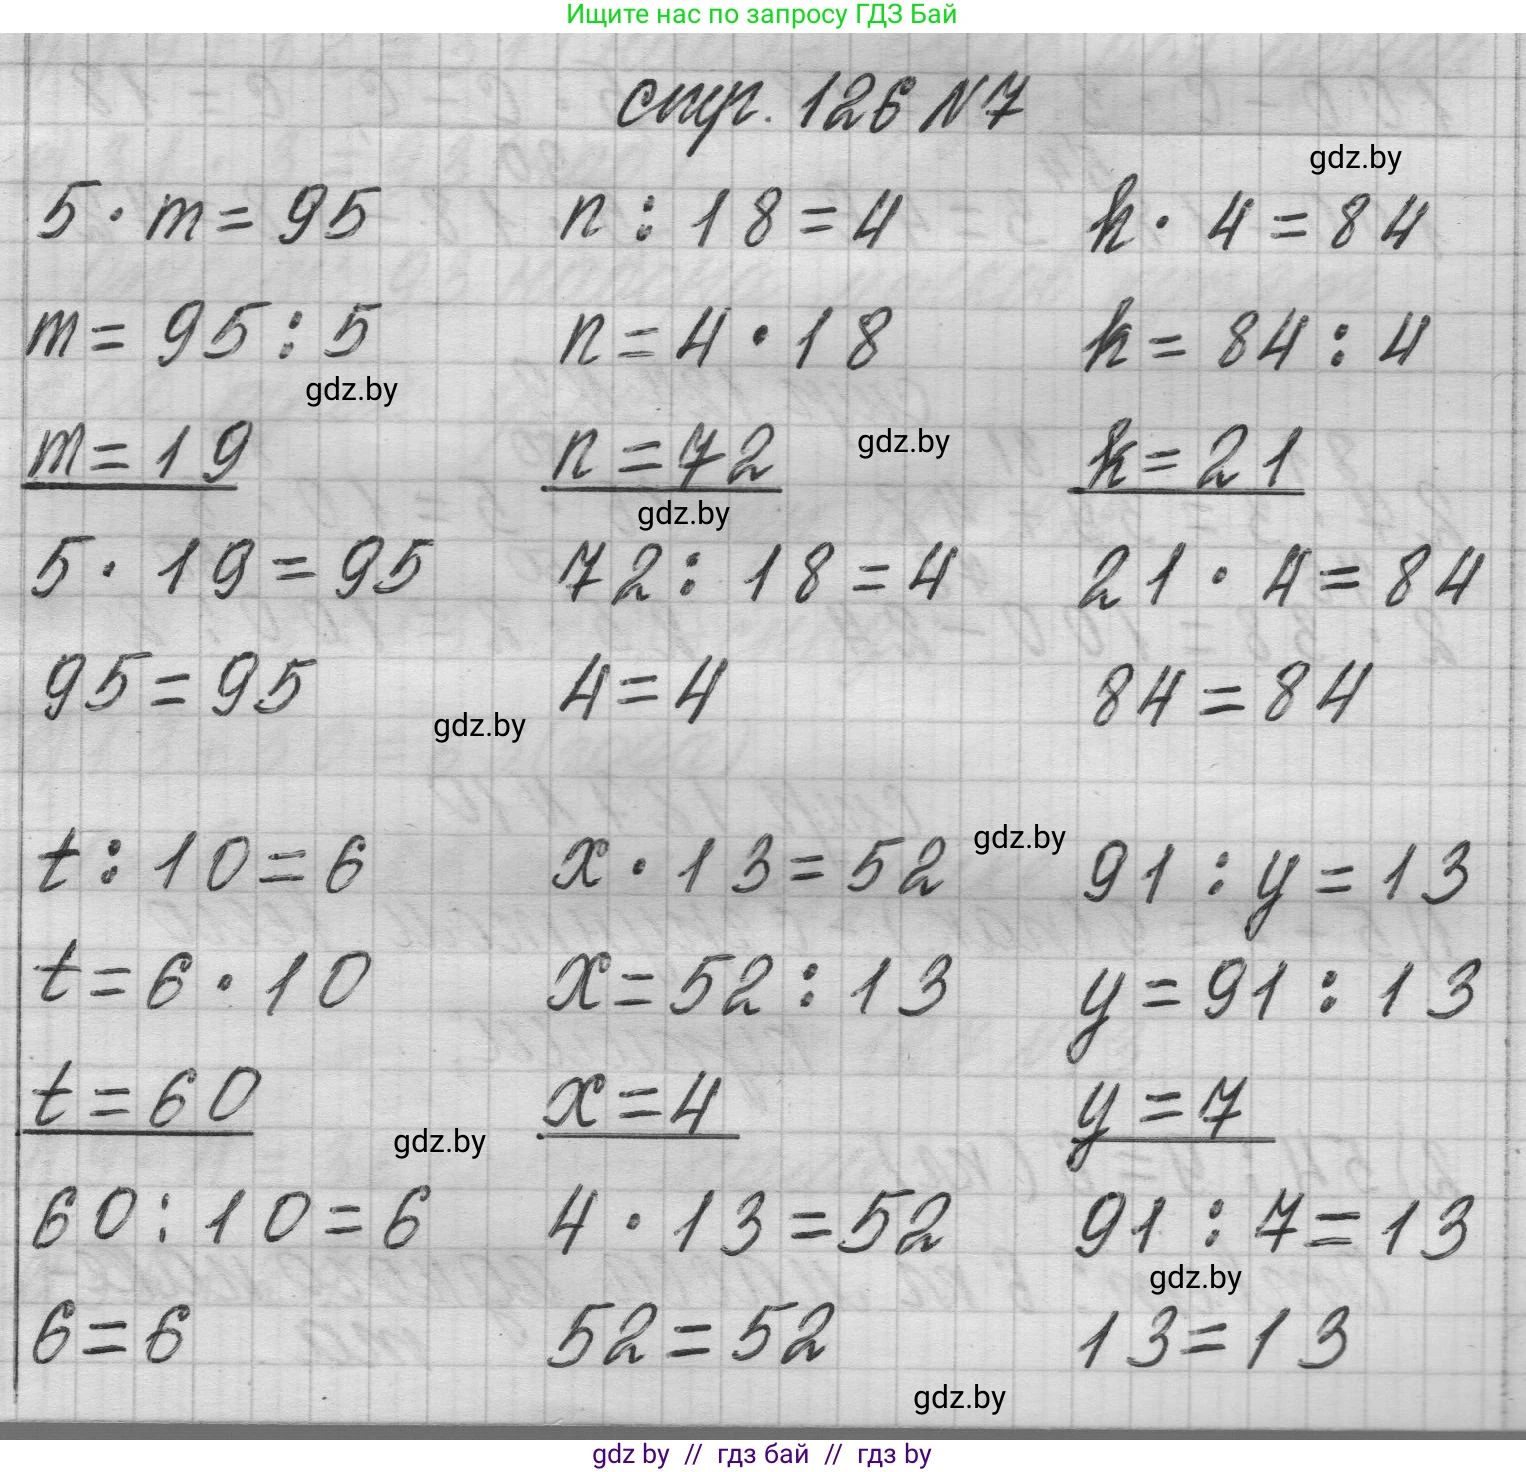 Ищите нас по запросу ГДЗ Бай
стр. 126 №7
gdz.by
5 · m = 95 n : 18 = 4 k · 4 = 84
m = 95 : 5 n = 4 · 18 k = 84 : 4
gdz.by
m = 19 n = 72 gdz.by k = 21
gdz.by
5 · 19 = 95 72 : 18 = 4 21 · 4 = 84
95 = 95 4 = 4 84 = 84
gdz.by
t : 10 = 6 x · 13 = 52 gdz.by 91 : y = 13
t = 6 · 10 x = 52 : 13 y = 91 : 13
t = 60 x = 4 y = 7
gdz.by
60 : 10 = 6 4 · 13 = 52 91 : 7 = 13
gdz.by
6 = 6 52 = 52 13 = 13
gdz.by
gdz by // гдз бай // гдз by